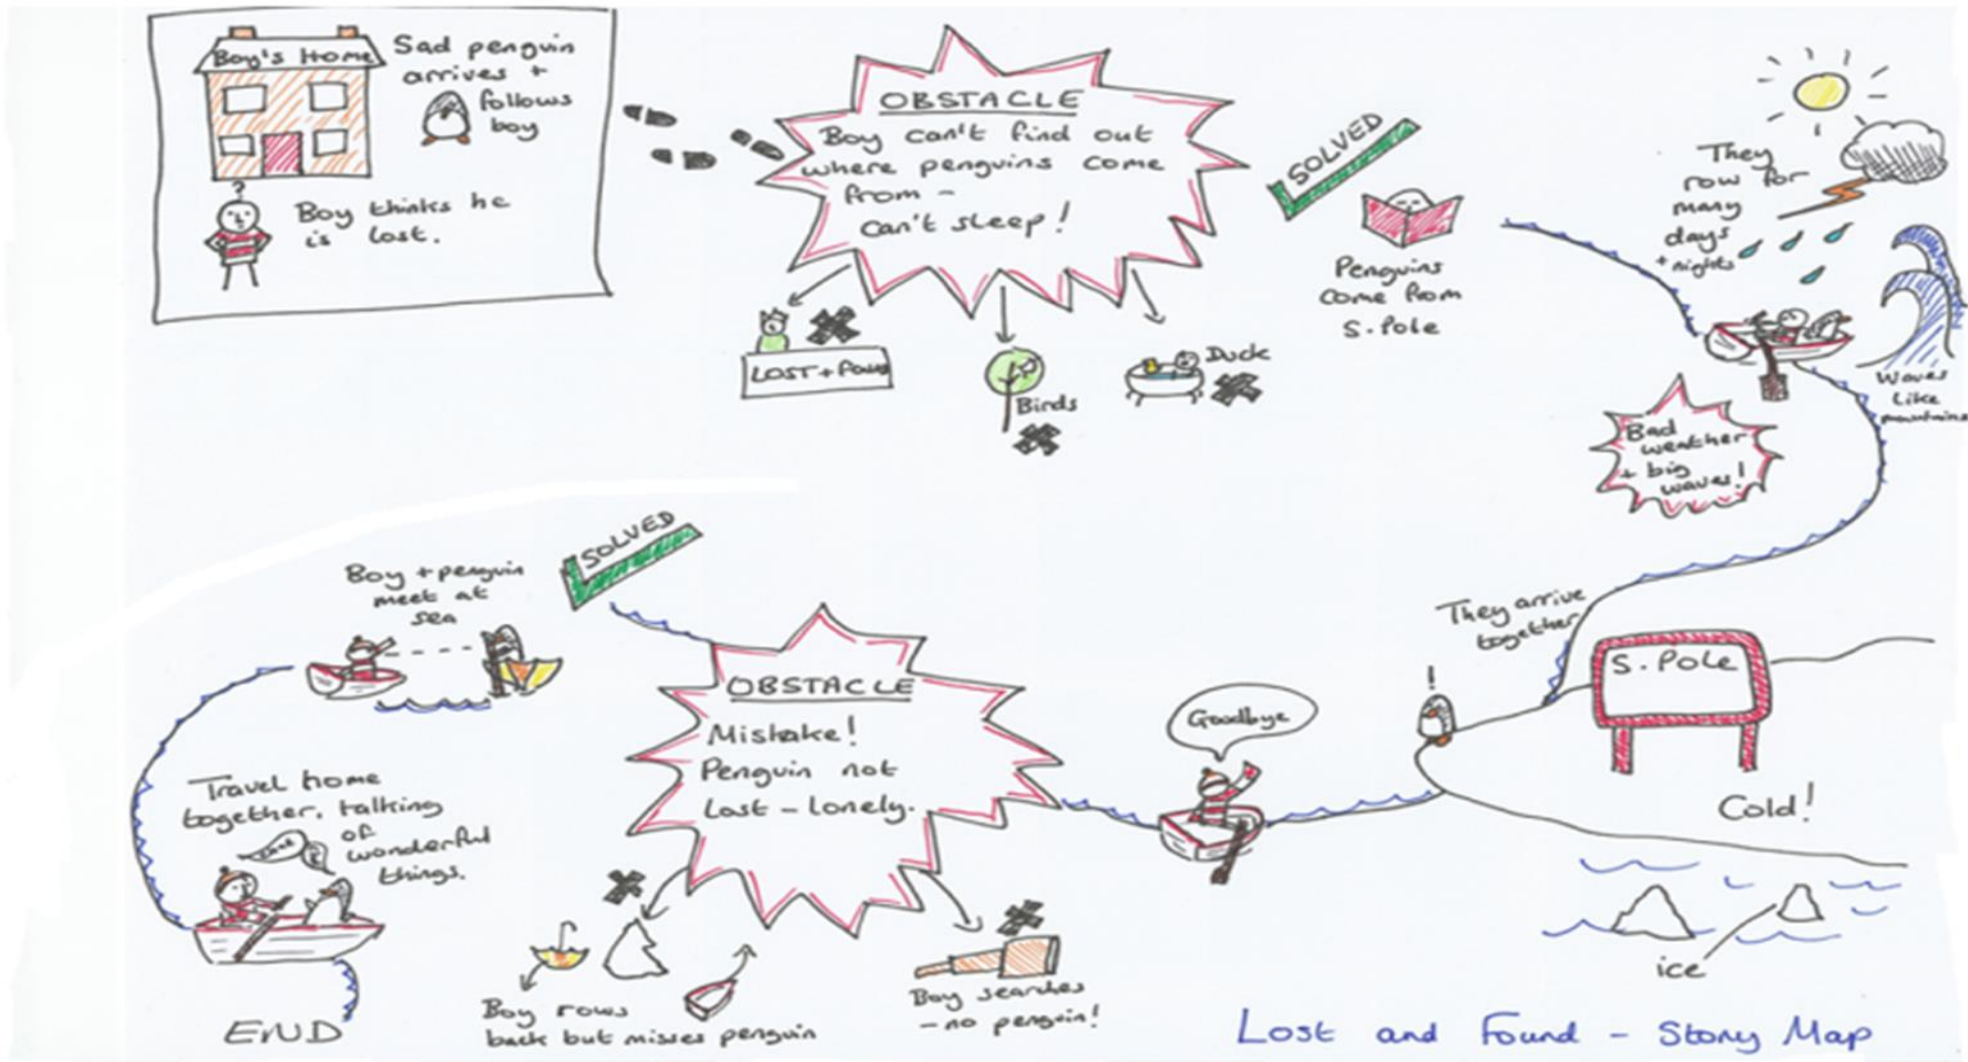 Boy's Home
Sad penguin
arrives +
follows
boy
?
Boy thinks he
is lost.
OBSTACLE
Boy can't find out
where penguins come
from -
can't sleep!
LOST + found
Birds
Duck
SOLVED
Penguins
come from
S. Pole
They
row for
many
days
+ nights
Waves
like
mountains
Bad
weather
+ big
waves!
They arrive
together
S. Pole
Cold!
ice
!
Goodbye
OBSTACLE
Mistake!
Penguin not
lost - lonely.
Boy searches
- no penguin!
Boy rows
back but misses penguin
SOLVED
Boy + penguin
meet at
sea
Travel home
together, talking
of
wonderful
things.
END
Lost and Found - Story Map